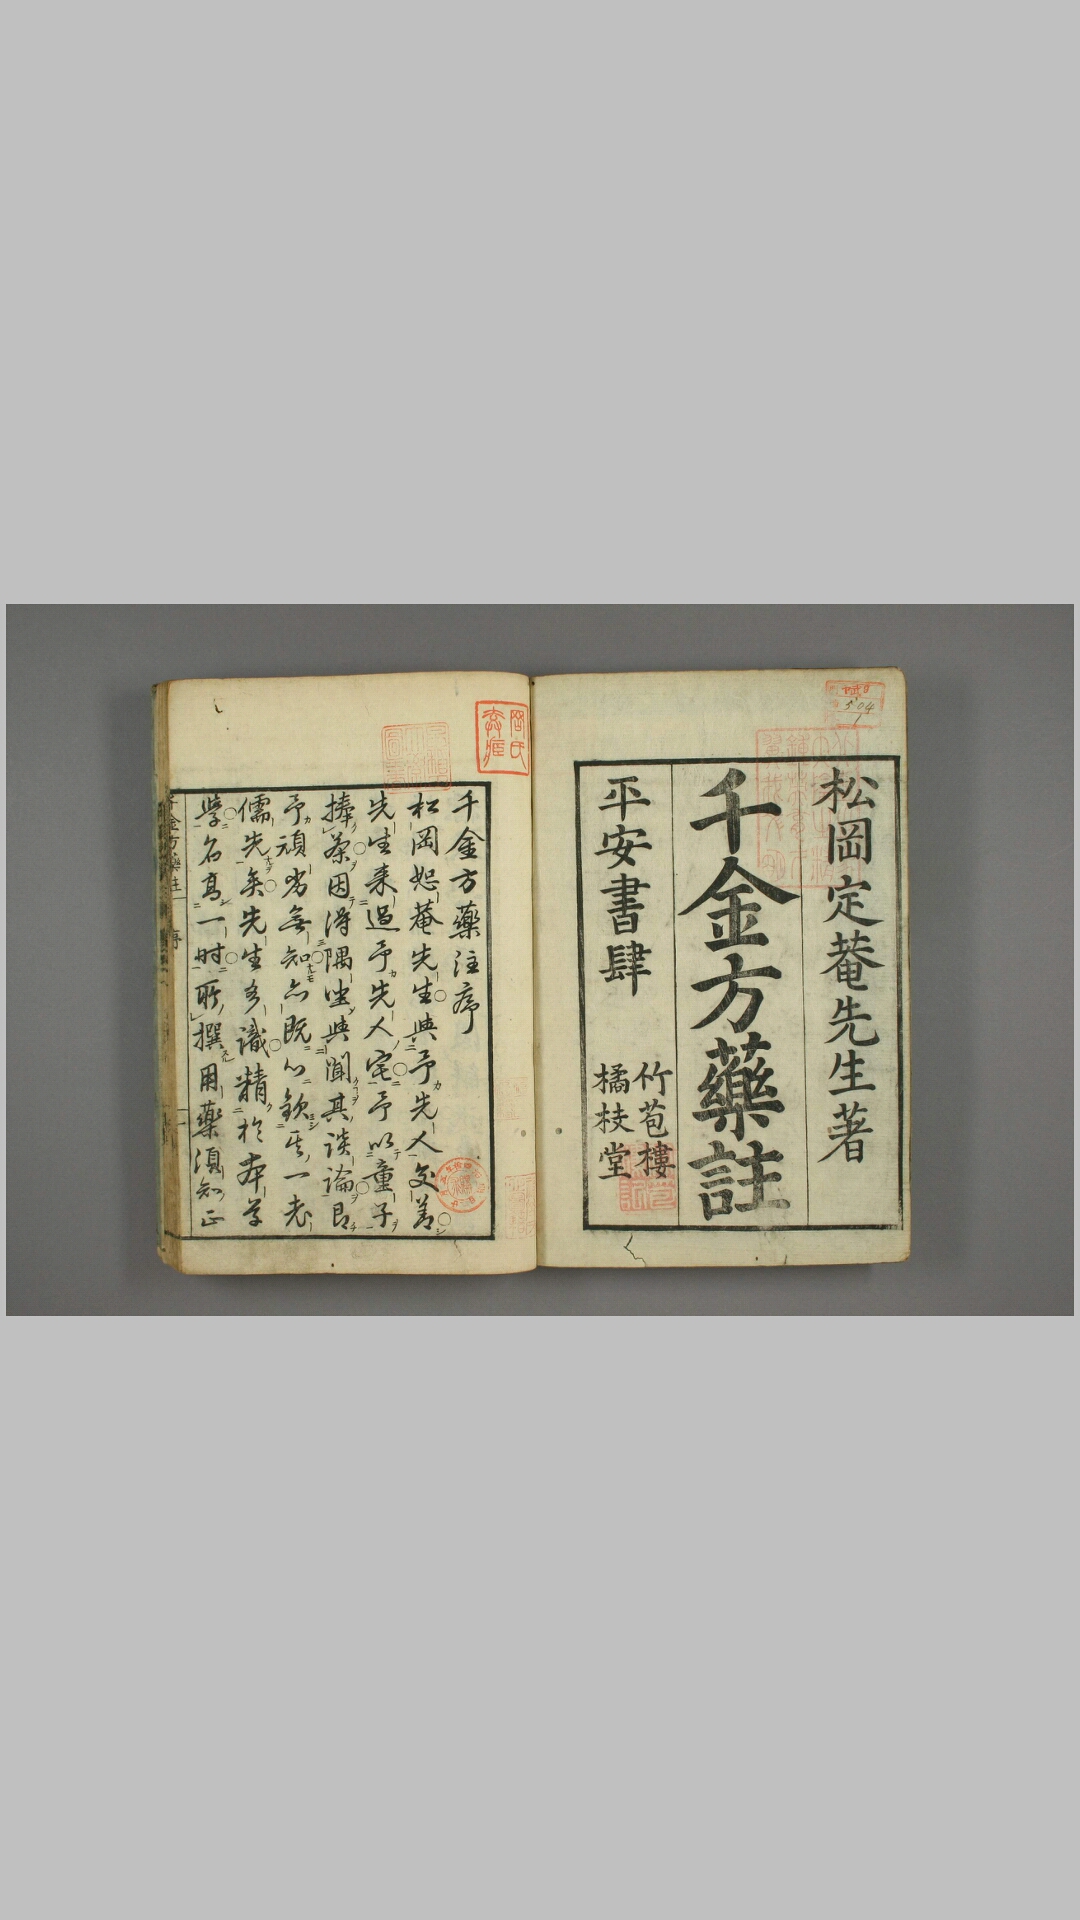 松岡定菴先生著
千金方藥註
平安書肆
竹苞樓
橘枝堂
千金方藥注序
松岡恕菴先生與予先人交善
先生来過予先人宅予以童子
捧茶因得隅坐與聞其談論
予頑劣無知亦既心欽其一老
儒先矣先生多識精於本草
學名高一時所撰用藥須知正